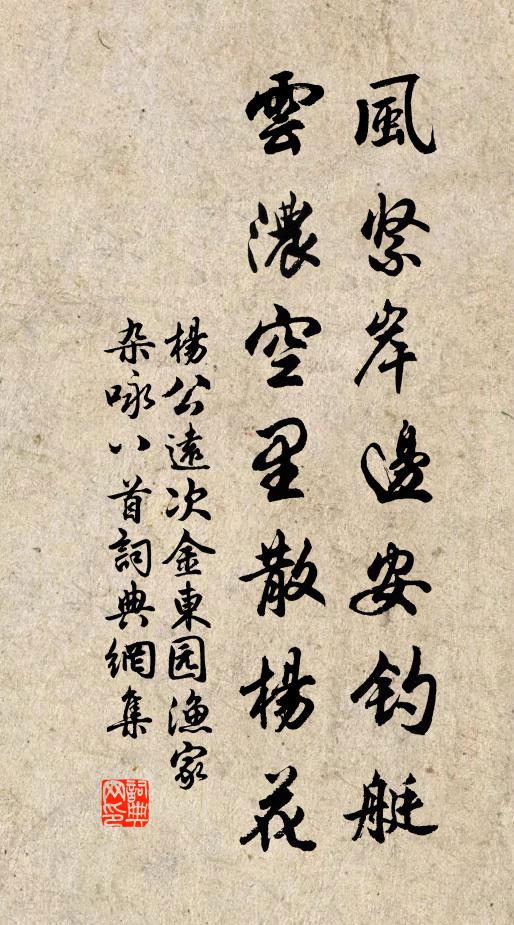 風紧岸邊安钓艇
雲濃空里散楊花
楊公遠次金東园漁家
杂咏八首詞典網集
詞典网印